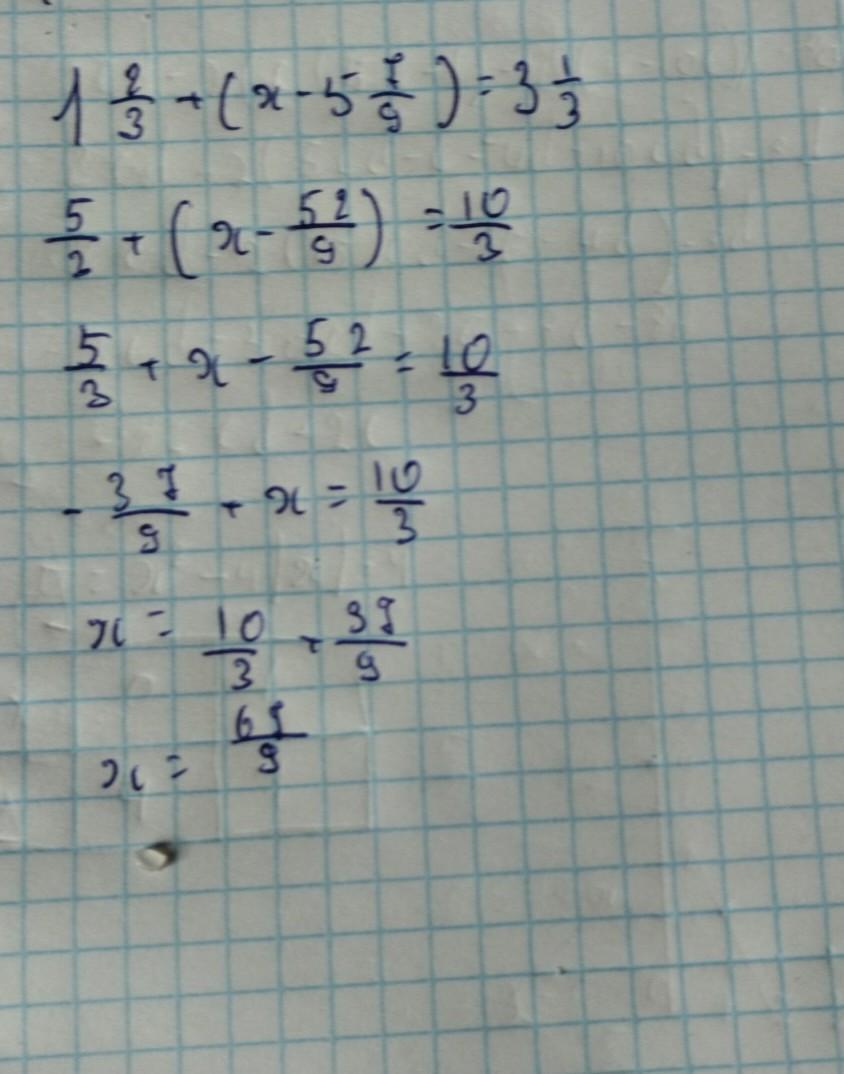 1 2/3 + (x - 5 7/9) = 3 1/3
5/2 + (x - 52/9) = 10/3
5/3 + x - 52/9 = 10/3
- 37/9 + x = 10/3
x = 10/3 + 39/9
x = 69/9